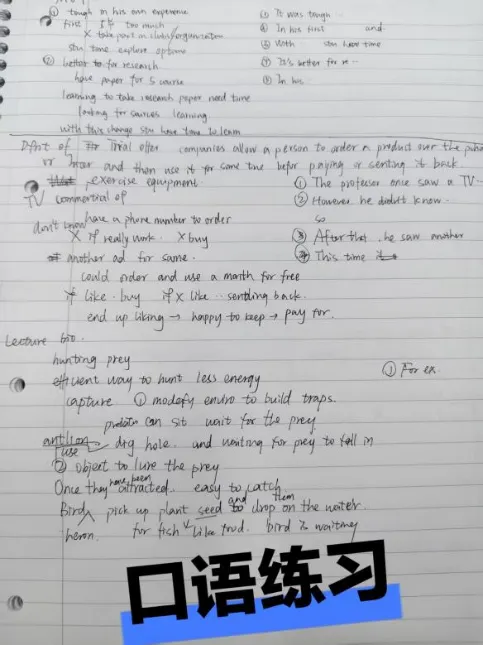 ① tough in his own experience ③ It was tough
first too much ④ In his first and
X take part in clubs/organization ⑤ With stu have time
stu time explore options ⑦ It's better for re…
② better to for research ⑧ In his
have paper for 5 course
learning to take research paper need time
looking for sources learning
with this change stu have time to learn
Dfnt of Trial offer companies allow a person to order a product over the phone
or and then use it for some time befor paying or senting it back
exercise equipment. ① The professor once saw a TV…
TV commertial of ② However, he didn't know
have a phone number to order so
don't know
X if really work. X buy ③ After that, he saw another
another ad for same. ④ This time
could order and use a month for free
if like. buy if X like .. sentding back.
end up liking → happy to keep → pay for.
Lecture bio.
hunting prey
efficient way to hunt less energy ① For ex.
capture ① modefy enviro to build traps.
predator can sit wait for the prey
antlion dig hole. and waiting for prey to fall in
use
② object to lure the prey
Once they have been attracted. easy to catch.
Bird pick up plant seed and to drop them on the water.
heron. for fish like trud. bird is waiting
口语练习